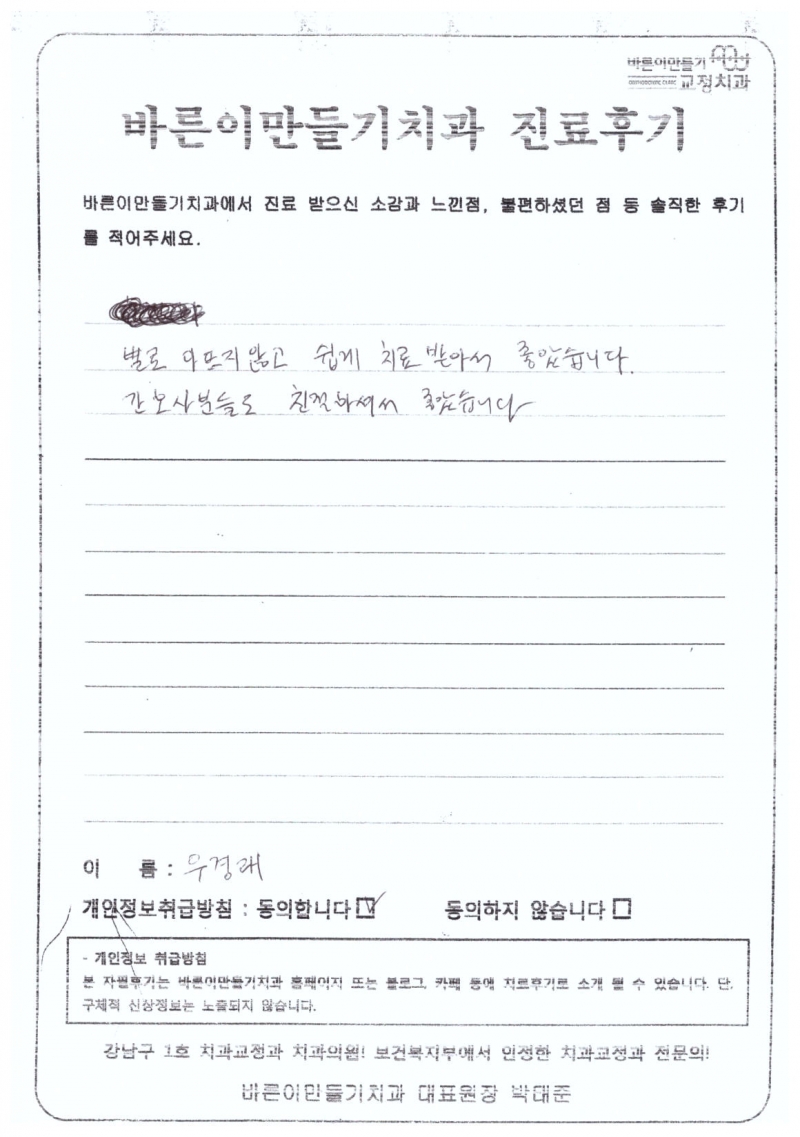 바른이만들기
교정치과
바른이만들기치과 진료후기
바른이만들기치과에서 진료 받으신 소감과 느낀점, 불편하셨던 점 등 솔직한 후기
를 적어주세요.
별로 아프지않고 쉽게 치료받아서 좋았습니다.
간호사분들도 친절하셔서 좋았습니다
이 름 : 우경래
개인정보취급방침 : 동의합니다 동의하지 않습니다
- 개인정보 취급방침
본 자필후기는 바른이만들기치과 홈페이지 또는 블로그, 카페 등에 치료후기로 소개 될 수 있습니다. 단,
구체적 신상정보는 노출되지 않습니다.
강남구 1호 치과교정과 치과의원! 보건복지부에서 인정한 치과교정과 전문의!
바른이만들기치과 대표원장 박대준